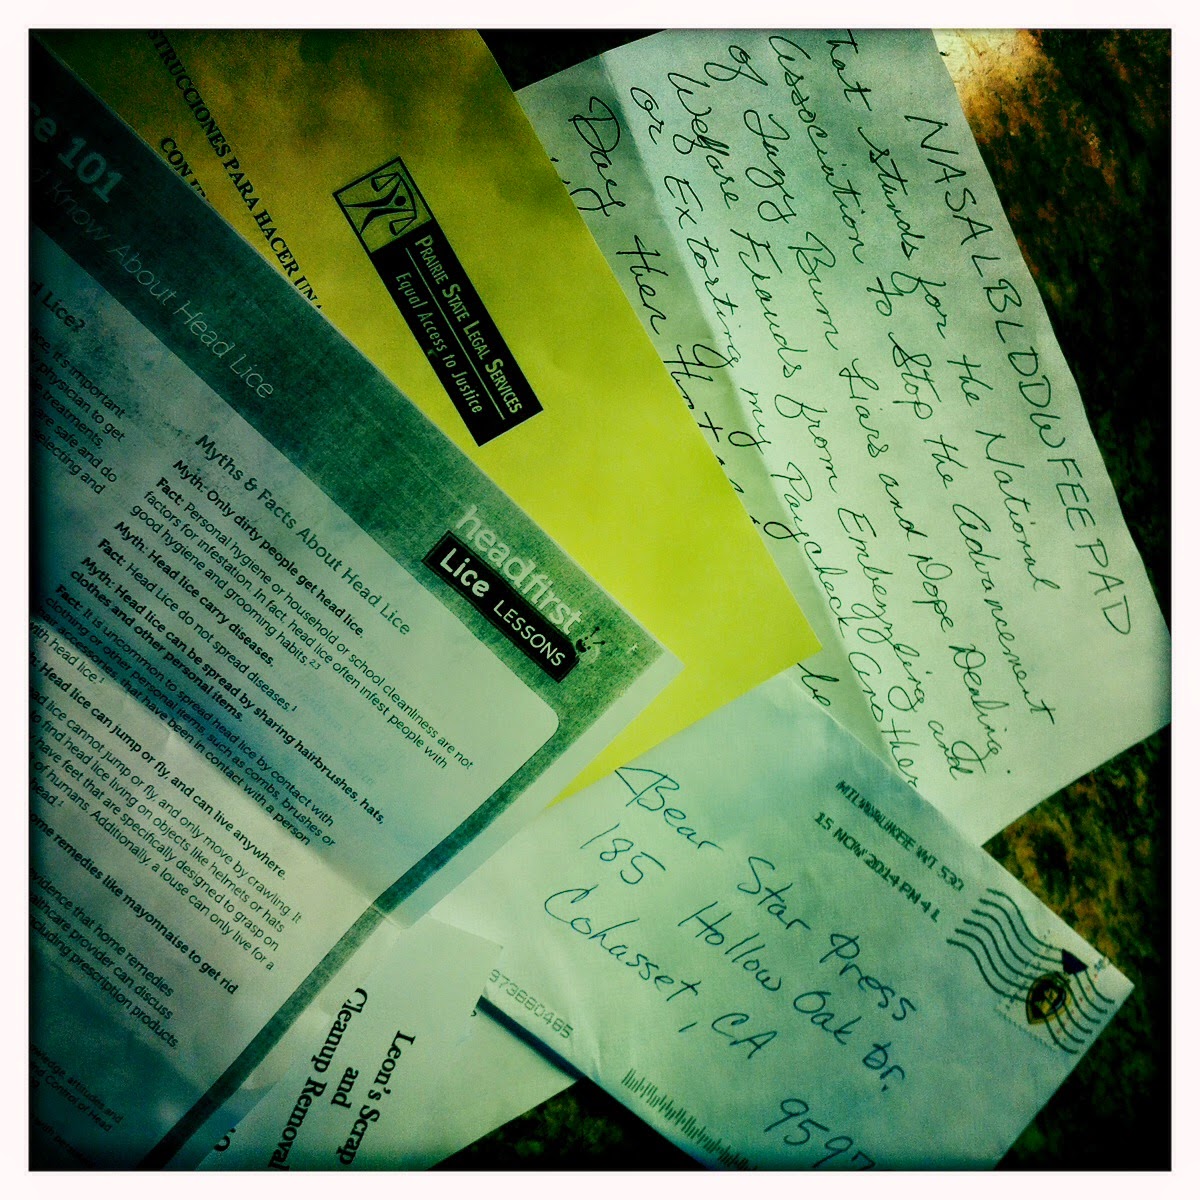 NASALBLDDWFEEPAD
that stands for the National
Association to Stop the Advancement
of Lazy Bum Liars and Dope Dealing
Welfare Frauds from Embezzling and
or Extorting my Paycheck another
Day then
be
STRUCCIONES PARA HACER UN
CON
PRAIRIE STATE LEGAL SERVICES
Equal Access to Justice
101
Know About Head Lice
headfirst
Lice LESSONS
Lice?
it's important
physician to get
treatments.
are safe and do
selecting and
Myths & Facts About Head Lice
Myth: Only dirty people get head lice.
Fact: Personal hygiene or household or school cleanliness are not
factors for infestation. In fact, head lice often infest people with
good hygiene and grooming habits.2,3
Myth: Head lice carry diseases.
Fact: Head Lice do not spread diseases.1
Myth: Head Lice can be spread by sharing hairbrushes, hats,
clothes and other personal items.
Fact: It is uncommon to spread head lice by contact with
clothing or other personal items, such as combs, brushes or
accessories, that have been in contact with a person
with head lice.1
Head lice can jump or fly, and can live anywhere.
lice cannot jump or fly, and only move by crawling. It
to find head lice living on objects like helmets or hats
have feet that are specifically designed to grasp on
of humans. Additionally, a louse can only live for a
head.1
home remedies like mayonnaise to get rid
evidence that home remedies
healthcare provider can discuss
including prescription products.
attitudes and
and Control of Head
Leon's Scrap
and
Cleanup Removal
MILWAUKEE WI 530
15 NOV 2014 PM 4 L
Bear Star Press
185 Hollow Oak Dr.
Cohasset, CA
9597